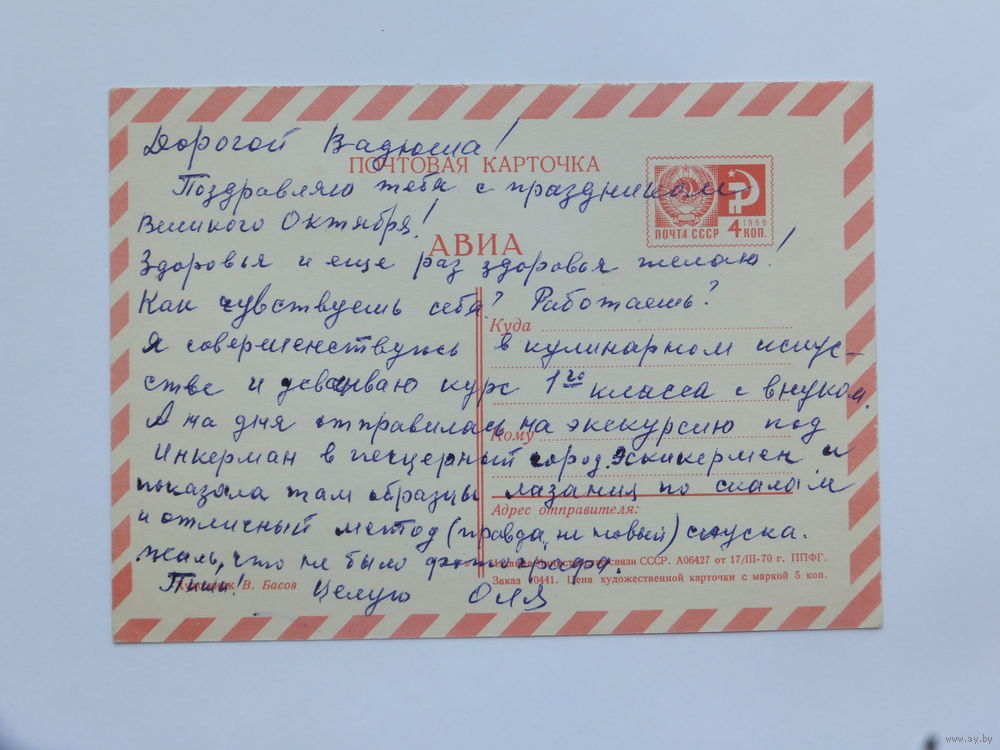 Дорогой Вадюша!
ПОЧТОВАЯ КАРТОЧКА
Поздравляю тебя с праздником
Великого Октября!
АВИА
ПОЧТА СССР
1966
4 КОП.
Здоровья и еще раз здоровья желаю!
Как чувствуешь себя? Работаешь?
Куда
Я совершенствуюсь в кулинарном искус-
стве и усваиваю курс 1го класса с внуком.
А на днях отправилась на экскурсию под
Кому
Инкерман в пещерный город Эскикермен и
показала там образцы лазания по скалам
Адрес отправителя:
и отличный метод (правда, не новый) спуска.
Жаль, что не было
связи СССР. А06427 от 17/III-70 г. ППФГ.
Заказ 0441. Цена художественной карточки с маркой 5 коп.
В. Басов
Пиши! Целую Оля
www.ay.by